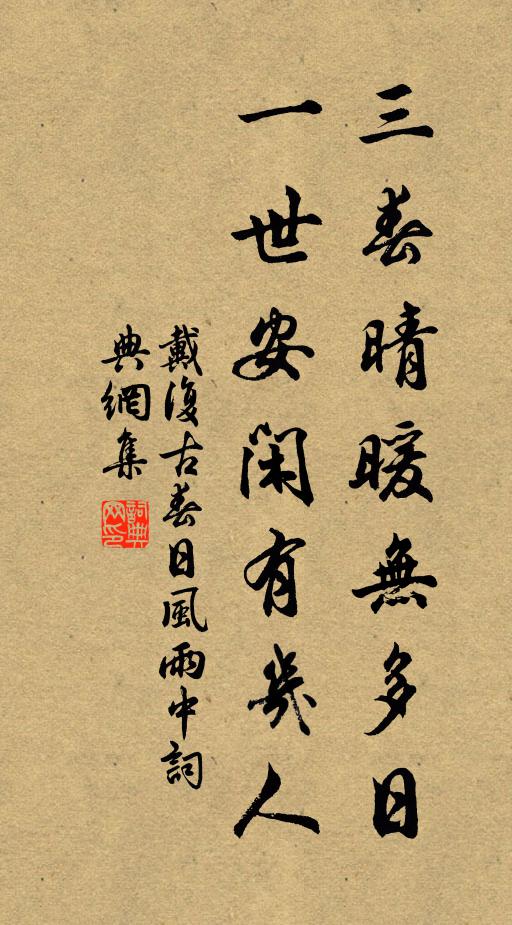 三春晴暖無多日
一世安閑有幾人
戴復古春日風雨中詞
典網集
詞典網印